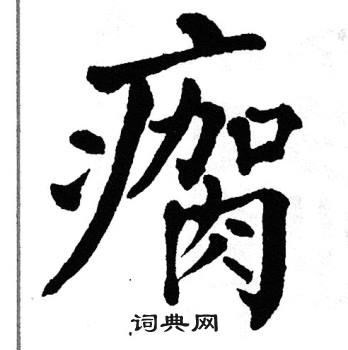 瘸
词典网